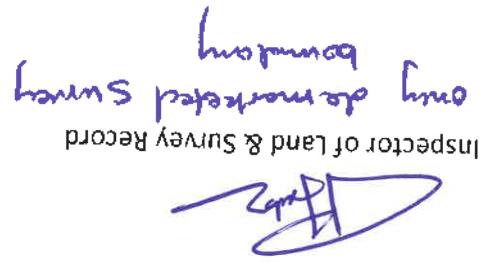 Inspector of Land & Survey Record
only demarketed Survey
boundary